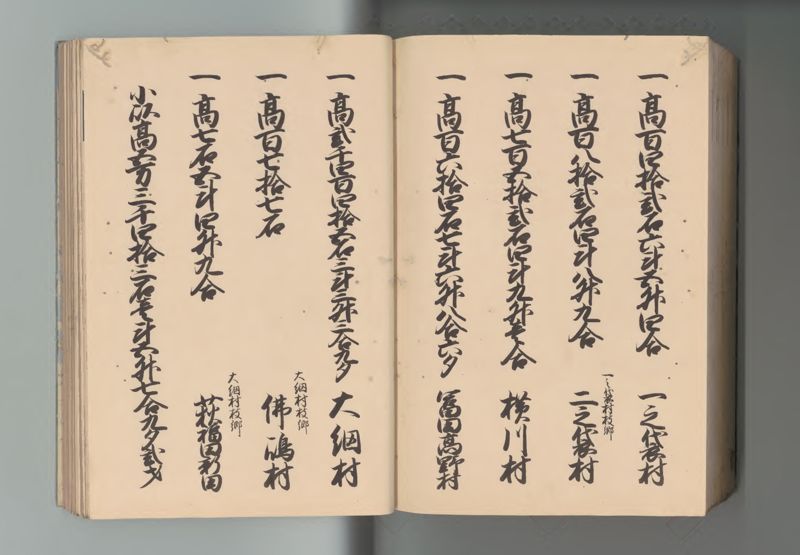 一 高百四拾弐石六斗五升四合 一之袋村
一 高百八拾弐石四斗八升九合 一之袋村枝郷 二之袋村
一 高七百五拾弐石四斗九升壱合 横川村
一 高百六拾四石七斗六升八合六夕 冨田高野村
一 高弐千四百四拾五石三斗三升三合九夕 大綱村
一 高百七拾七石 大綱村枝郷 佛嶋村
一 高七石五斗四升九合 大綱村枝郷 萩福田新田
小以高五万三千四拾三石壱斗五升七合九夕弐才